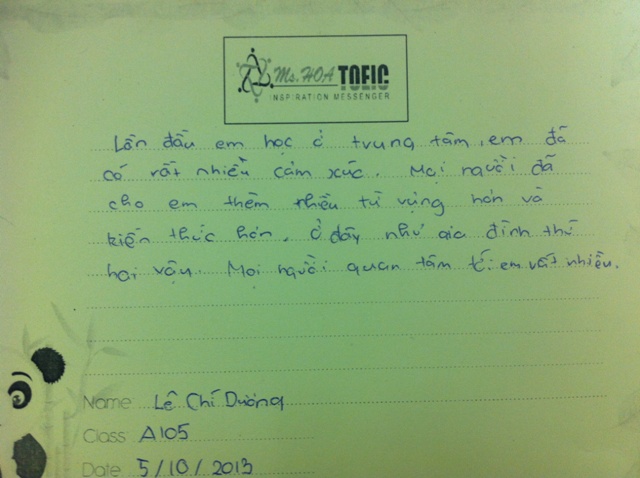 Ms. HOA TOEIC
INSPIRATION MESSENGER
Lần đầu em học ở trung tâm, em đã
có rất nhiều cảm xúc. Mọi người đã
cho em thêm nhiều từ vựng hơn và
kiến thức hơn. Ở đây như gia đình thứ
hai vậy. Mọi người quan tâm tới em rất nhiều.
Name Lê Chí Dường
Class A105
Date 5/10/2013